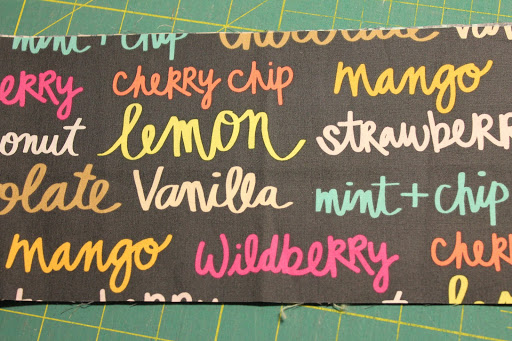 mint + chip chocolate van
erry cherry chip mango
onut lemon strawberr
olate Vanilla mint + chip
mango Wildberry cherr